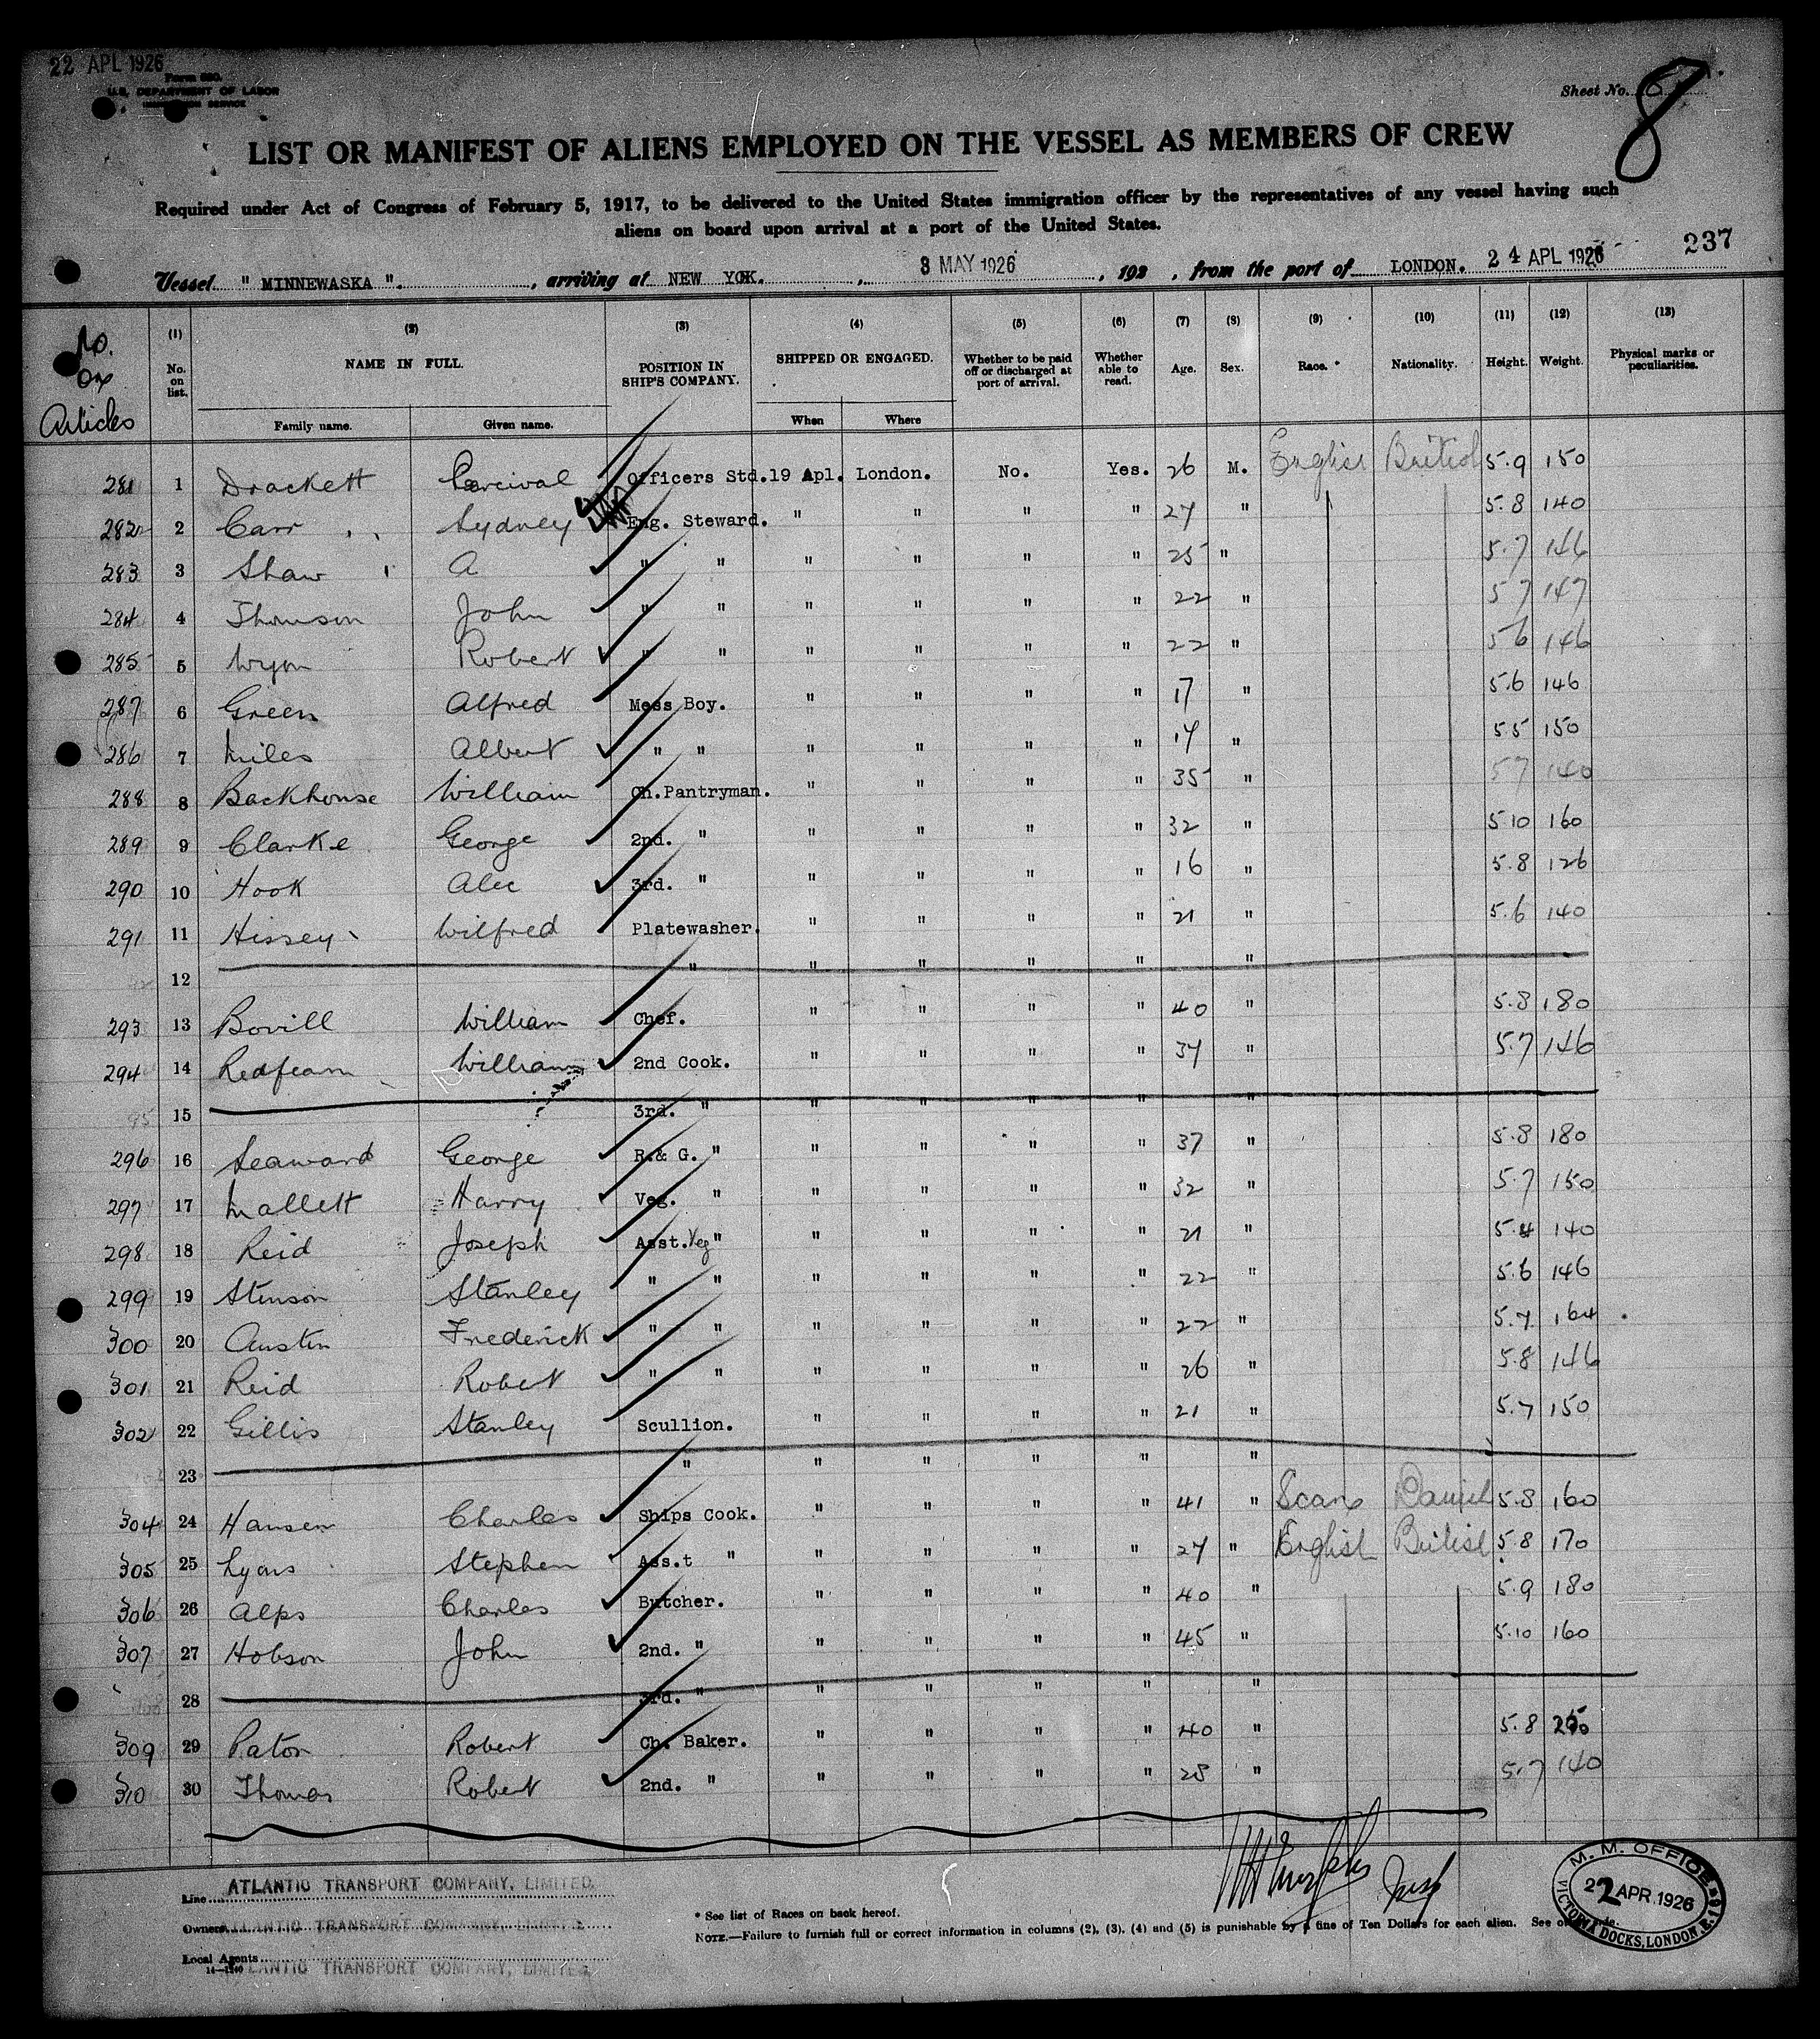 22 APL 1926
Form 680.
U.S. DEPARTMENT OF LABOR
IMMIGRATION SERVICE
Sheet No. 8
LIST OR MANIFEST OF ALIENS EMPLOYED ON THE VESSEL AS MEMBERS OF CREW
Required under Act of Congress of February 5, 1917, to be delivered to the United States immigration officer by the representatives of any vessel having such
aliens on board upon arrival at a port of the United States.
237
Vessel " MINNEWASKA ". , arriving at NEW YOK. , 3 MAY 1926 , 192 , from the port of LONDON. 24 APL 1926
No. on Articles (1) No. on list. (2) NAME IN FULL. Family name. Given name. (3) POSITION IN SHIP'S COMPANY. (4) SHIPPED OR ENGAGED. When Where (5) Whether to be paid off or discharged at port of arrival. (6) Whether able to read. (7) Age. (8) Sex. (9) Race.* (10) Nationality. (11) Height. (12) Weight. (13) Physical marks or peculiarities.
281 1 Drackett Percival Officers Std. 19 Apl. London. No. Yes. 26 M. English British 5.9 150
282 2 Carr Sydney Eng. Steward. " " " " 27 " 5.8 140
283 3 Shaw A " " " " " " 25 " 5.7 146
284 4 Thomson John " " " " " " 22 " 5 7 147
285 5 Wyon Robert " " " " " " 22 " 5 6 146
287 6 Green Alfred Mess Boy. " " " " 17 " 5.6 146
286 7 Miles Albert " " " " " " 17 " 5 5 150
288 8 Backhouse William Ch. Pantryman. " " " " 35 " 5 7 140
289 9 Clarke George 2nd. " " " " " 32 " 5 10 160
290 10 Hook Alec 3rd. " " " " " 16 " 5.8 126
291 11 Hissey Wilfred Platewasher. " " " " 21 " 5.6 140
12 " " " " " "
293 13 Bovill William Chef. " " " " 40 " 5.8 180
294 14 Redfearn William 2nd Cook. " " " " 34 " 5.7 146
15 3rd. " " " " " "
296 16 Seaward George R.& G. " " " " " 37 " 5.8 180
297 17 Mallett Harry Veg. " " " " " 32 " 5.7 150
298 18 Reid Joseph Asst.Veg " " " " " 21 " 5.4 140
299 19 Stinson Stanley " " " " " " 22 " 5.6 146
300 20 Austin Frederick " " " " " " 22 " 5.7 164
301 21 Reid Robert " " " " " " 26 " 5.8 146
302 22 Gillis Stanley Scullion. " " " " 21 " 5.7 150
23 " " " " " "
304 24 Hansen Charles Ships Cook. " " " " 41 " Scan Danish 5.8 160
305 25 Lyons Stephen Ass.t " " " " " 27 " English British 5.8 170
306 26 Alps Charles Butcher. " " " " 40 " 5.9 180
307 27 Hobson John 2nd. " " " " " 45 " 5.10 160
28 3rd. " " " " " "
309 29 Paton Robert Ch. Baker. " " " " 40 " 5.8
310 30 Thomas Robert 2nd. " " " " " 28 " 5.7 140
Line ATLANTIC TRANSPORT COMPANY, LIMITED.
Owners ATLANTIC TRANSPORT COMPANY, LIMITED.
Local Agents ATLANTIC TRANSPORT COMPANY, LIMITED.
* See list of Races on back hereof.
NOTE.—Failure to furnish full or correct information in columns (2), (3), (4) and (5) is punishable by a fine of Ten Dollars for each alien. See
M. M. OFFICE
22 APR 1926
VICTORIA DOCKS, LONDON, E.16